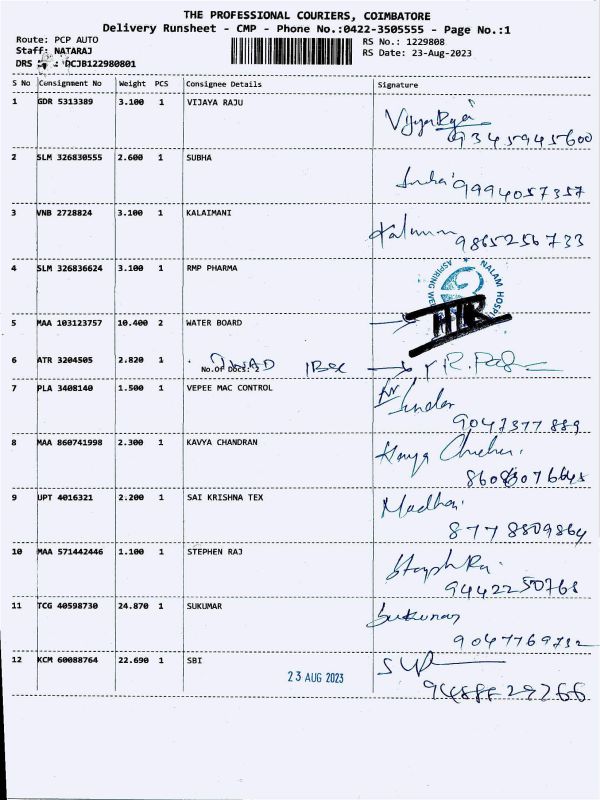 THE PROFESSIONAL COURIERS, COIMBATORE
Delivery Runsheet - CMP - Phone No.:0422-3505555 - Page No.:1
Route: PCP AUTO
RS No.: 1229808
Staff: NATARAJ
RS Date: 23-Aug-2023
DRS DCJB122980801
S No Consignment No Weight PCS Consignee Details Signature
1 GDR 5313389 3.100 1 VIJAYA RAJU
9345945600
2 SLM 326830555 2.600 1 SUBHA
9994057357
3 VNB 2728824 3.100 1 KALAIMANI
9865256733
4 SLM 326836624 3.100 1 RMP PHARMA
NALAM HOSPI
ASPIRING WE
5 MAA 103123757 10.400 2 WATER BOARD
6 ATR 3204505 2.820 1
No.Of Docs: 2
7 PLA 3408140 1.500 1 VEPEE MAC CONTROL
9047377889
8 MAA 860741998 2.300 1 KAVYA CHANDRAN
9 UPT 4016321 2.200 1 SAI KRISHNA TEX
Madhai
8778809864
10 MAA 571442446 1.100 1 STEPHEN RAJ
9442250768
11 TCG 40598730 24.870 1 SUKUMAR
Sukumar
9047769732
12 KCM 60088764 22.690 1 SBI
23 AUG 2023